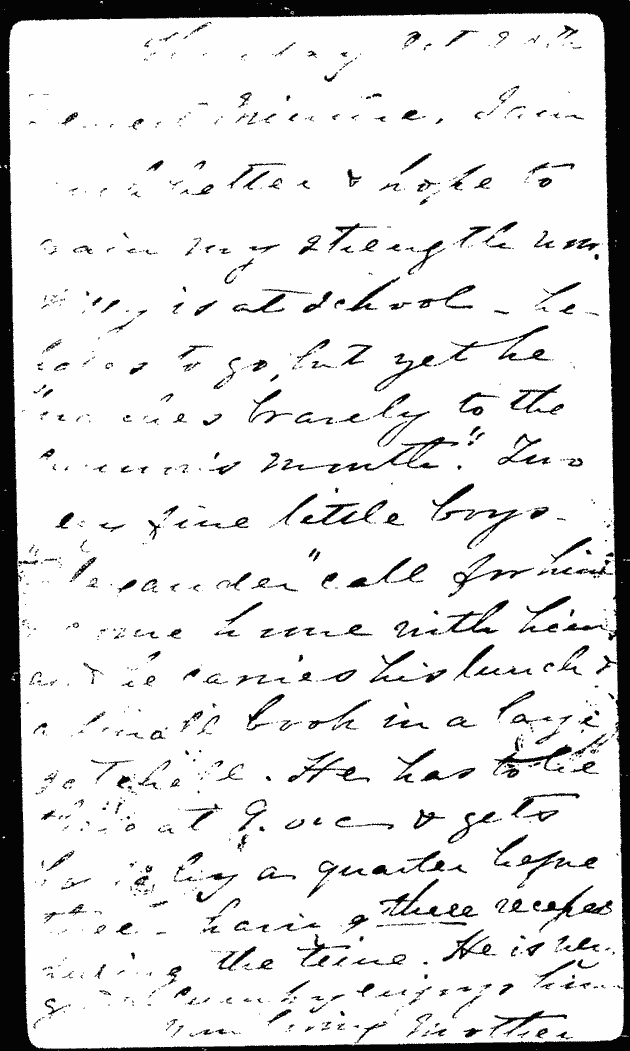 Thursday Oct 20th
Dearest Minnie, I am
much better & hope to
gain my strength now.
Willy is at school - he
hates to go, but yet he
"marches bravely to the
cannon's mouth." Two
fine little boys -
"Alexander" call for him
& come home with him,
and he carries his lunch &
a small book in a large
satchell. He has to be
there at 9. o'c & gets
back by a quarter before
three - having three recesses
during the time. He is very
good
Your loving Mother